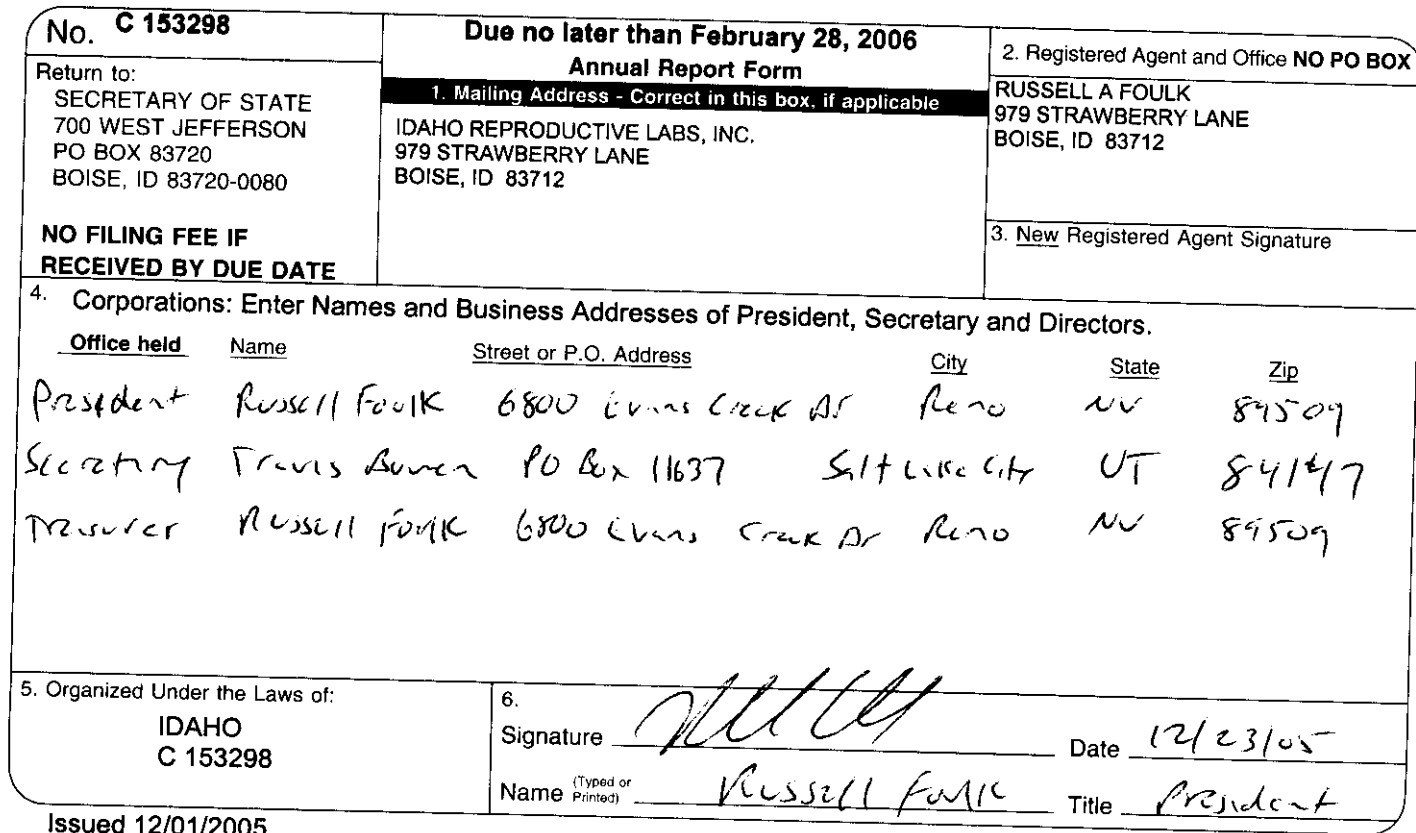 No. C 153298
Return to:
SECRETARY OF STATE
700 WEST JEFFERSON
PO BOX 83720
BOISE, ID 83720-0080
NO FILING FEE IF
RECEIVED BY DUE DATE
Due no later than February 28, 2006
Annual Report Form
1. Mailing Address - Correct in this box, if applicable
IDAHO REPRODUCTIVE LABS, INC.
979 STRAWBERRY LANE
BOISE, ID 83712
2. Registered Agent and Office NO PO BOX
RUSSELL A FOULK
979 STRAWBERRY LANE
BOISE, ID 83712
3. New Registered Agent Signature
4. Corporations: Enter Names and Business Addresses of President, Secretary and Directors.
Office held Name Street or P.O. Address City State Zip
President Russell Foulk 6800 Evans Creek Dr Reno NV 89509
Secretary Travis Bowen PO Box 11637 Salt Lake City UT 84147
Treasurer Russell Foulk 6800 Evans Creek Dr Reno NV 89509
5. Organized Under the Laws of:
IDAHO
C 153298
6.
Signature Date 12/23/05
Name (Typed or Printed) Russell Foulk Title President
Issued 12/01/2005